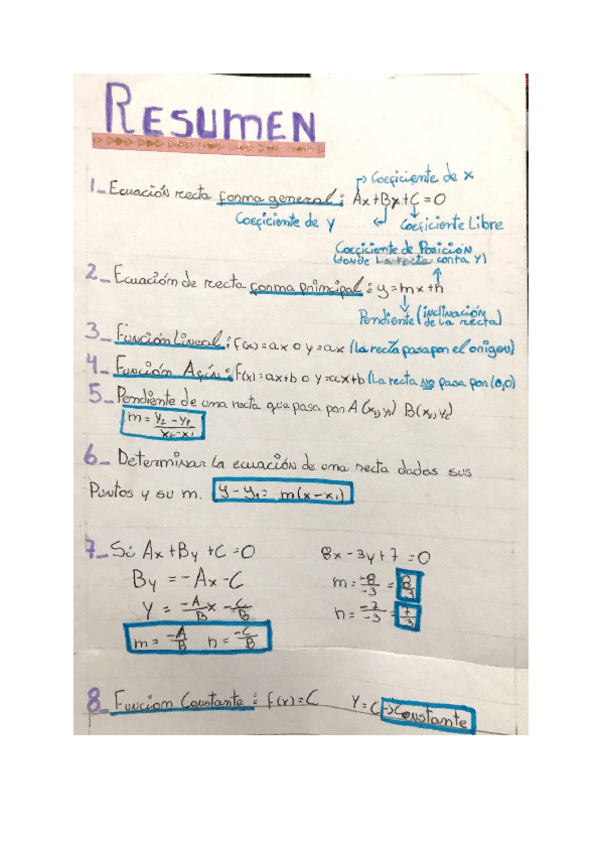 RESUMEN
Coeficiente de x
1_ Ecuación recta forma general: Ax+By+C=0
Coeficiente de y Coeficiente Libre
Coeficiente de Posición
(donde La recta conta Y)
2_ Ecuación de recta forma principal: y=mx+n
Pendiente (inclinación de la recta)
3_ Función Lineal: F(x)=ax o y=ax (La recta pasa por el origen)
4_ Función Afín: F(x)=ax+b o y=ax+b (La recta no pasa por (0,0)
5_ Pendiente de una recta que pasa por A(x₁,y₁) B(x₂,y₂)
m = y₂-y₁/x₂-x₁
6_ Determinar la ecuación de una recta dados sus
Puntos y su m. y-y₁= m(x-x₁)
7_ Si Ax+By+C=0 8x-3y+7=0
By=-Ax-C m=-8/-3=8/3
Y=-A/B x -C/B n=-7/-3=7/3
m=-A/B n=-C/B
8_ Funcion Constante: f(x)=C Y=C→Constante